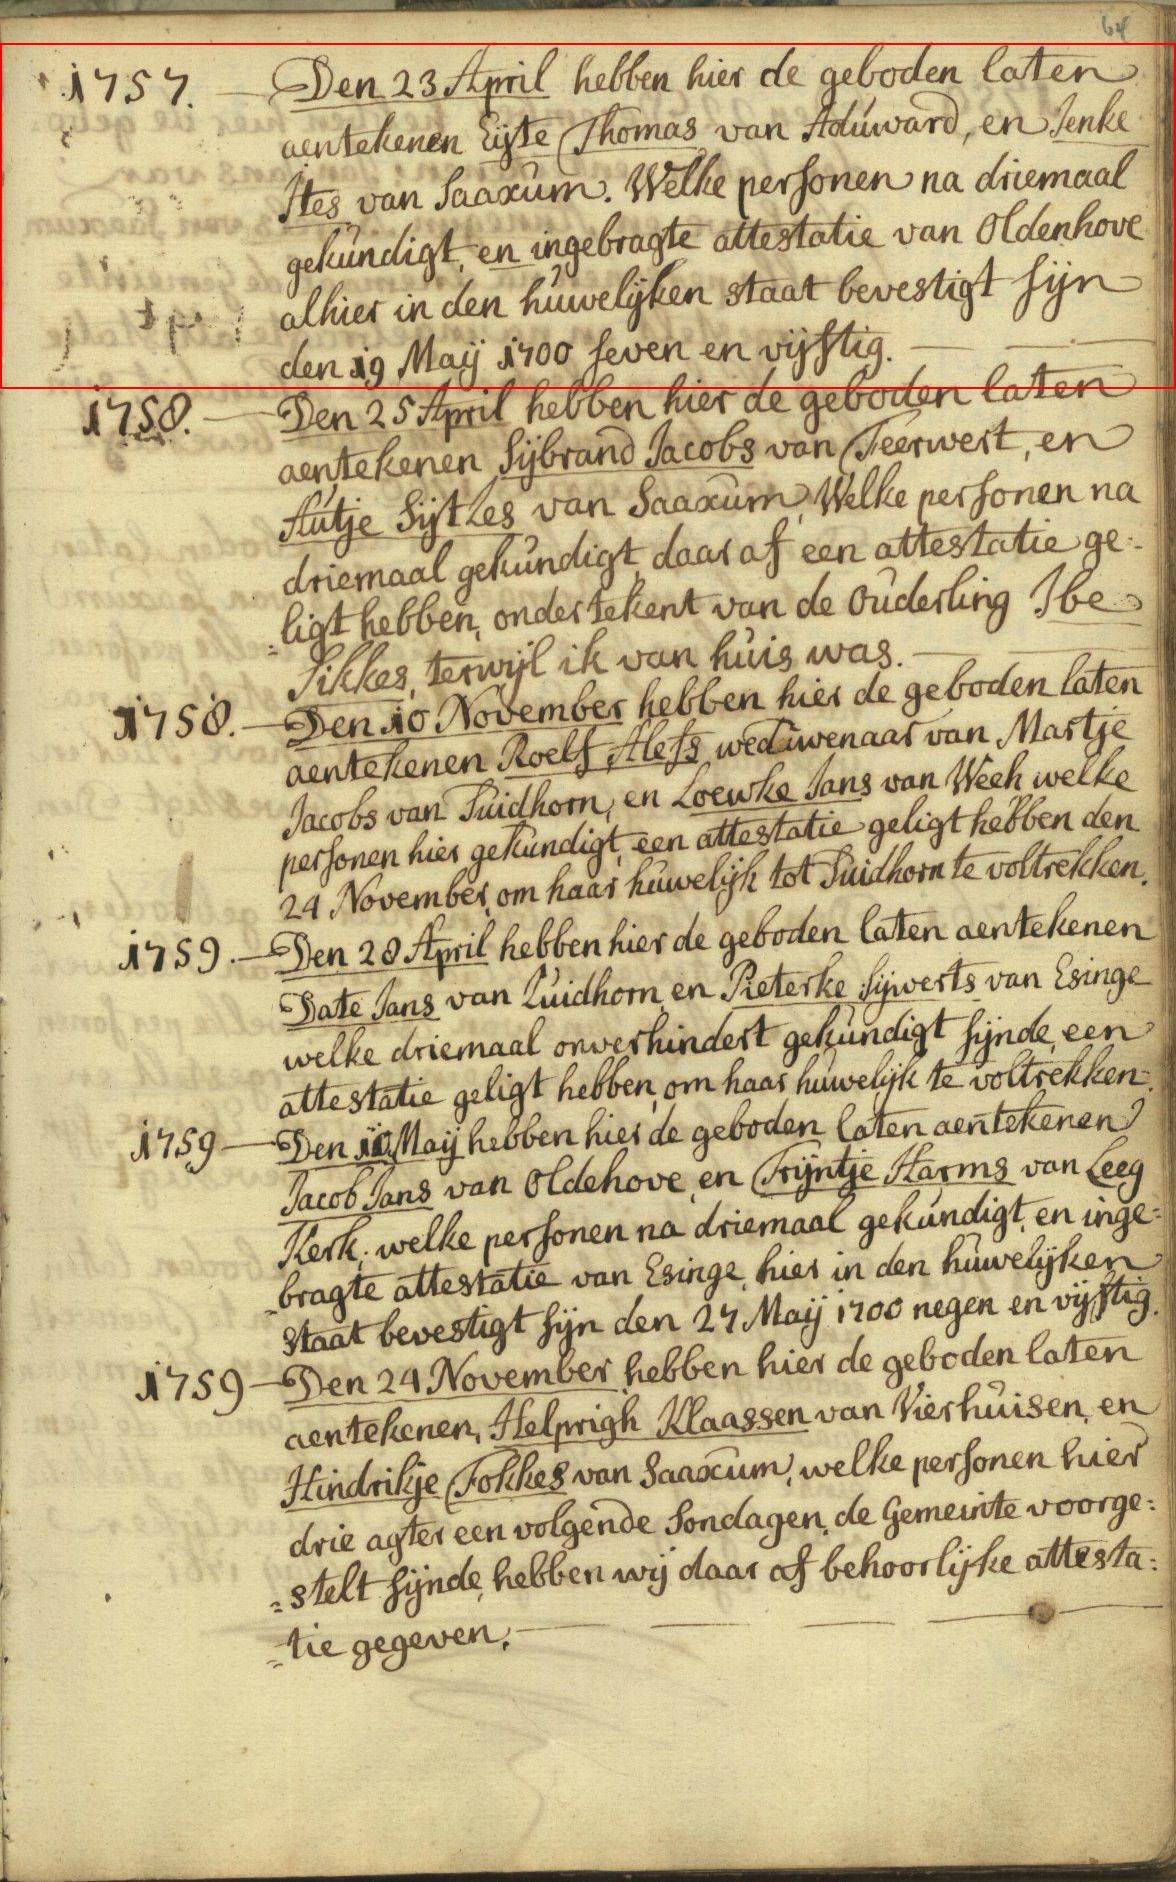 64
1757. Den 23 April hebben hier de geboden laten
aentekenen Eijte Thomas van Aduward, en Jenke
Ites van Saaxum. Welke personen na driemaal
gekundigt, en ingebragte attestatie van Oldenhove
alhier in den huwelijken staat bevestigt sijn
den 19 Maij 1700 seven en vijftig.
1758. Den 25 April hebben hier de geboden laten
aentekenen Sijbrand Jacobs van Feerwert, en
Autje Sijtzes van Saaxum, Welke personen na
driemaal gekundigt, daar af een attestatie ge-
=ligt hebben, ondertekent van de Ouderling Ibe
Sikkes, terwijl ik van huis was.
1758. Den 10 November hebben hier de geboden laten
aentekenen Roelf Alefs, weduwenaar van Martje
Jacobs van Suidhorn, en Loewke Jans van Weeh welke
personen hier gekundigt, een attestatie geligt hebben den
24 November, om haar huwelijk tot Suidhorn te voltrekken.
1759. Den 28 April hebben hier de geboden laten aentekenen
Date Jans van Zuidhorn, en Pieterke Sijwerts van Esinge
welke driemaal onverhindert gekundigt sijnde, een
attestatie geligt hebben, om haar huwelijk te voltrekken.
1759 Den 10 Maij hebben hier de geboden laten aentekenen
Jacob Jans van Oldehove, en Trijntje Harms van Leeg
Kerk, welke personen na driemaal gekundigt, en inge=
=bragte attestatie van Esinge, hier in den huwelijken
staat bevestigt sijn den 27 Maij 1700 negen en vijftig.
1759 Den 24 November hebben hier de geboden laten
aentekenen, Helprigh Klaassen van Vierhuisen, en
Hindrikje Fokkes van Saaxum, welke personen hier
drie agter een volgende Sondagen, de Gemeinte voorge=
=stelt sijnde, hebben wij daar of behoorlijke attesta=
=tie gegeven.